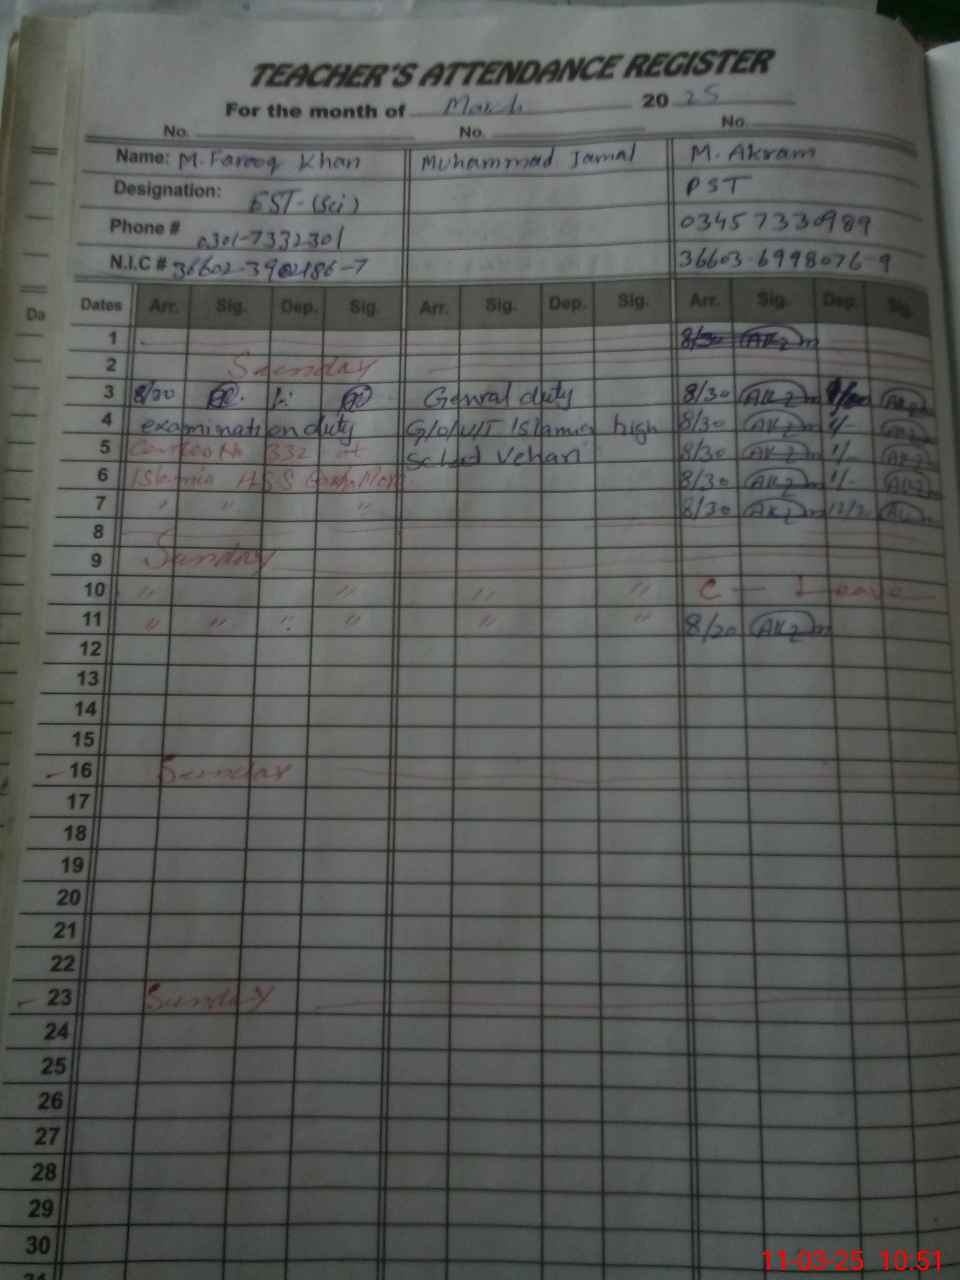 TEACHER'S ATTENDANCE REGISTER
For the month of March 20 25
No. No. No.
Name: M. Farooq Khan Muhammad Jamal M. Akram
Designation: EST-(Sci) PST
Phone # 0301-7332301 03457330989
N.I.C # 36603-6998076-9
Da Dates Arr. Sig. Dep. Sig. Arr. Sig. Dep. Sig. Arr. Sig. Dep. Sig.
1 8/30
2 Sunday
3 8/30 Genral duty 8/30
4 examination duty Islamia high 8/30 1/-
5 332 at School Vehari 8/30 1/-
6 Islamia 8/30 1/-
7 " " " 8/30
8
9 Sunday
10 " " " " C - Leave
11 " " " " " " 8/30
12
13
14
15
16 Sunday
17
18
19
20
21
22
23 Sunday
24
25
26
27
28
29
30
11-03-25 10:51